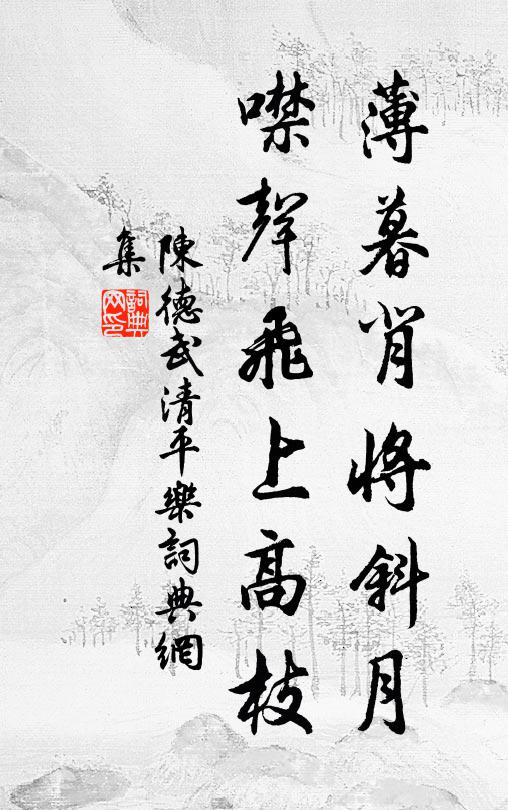 薄暮背將斜月
噤聲飛上高枝
陳德武清平樂詞典網
集
詞典網印